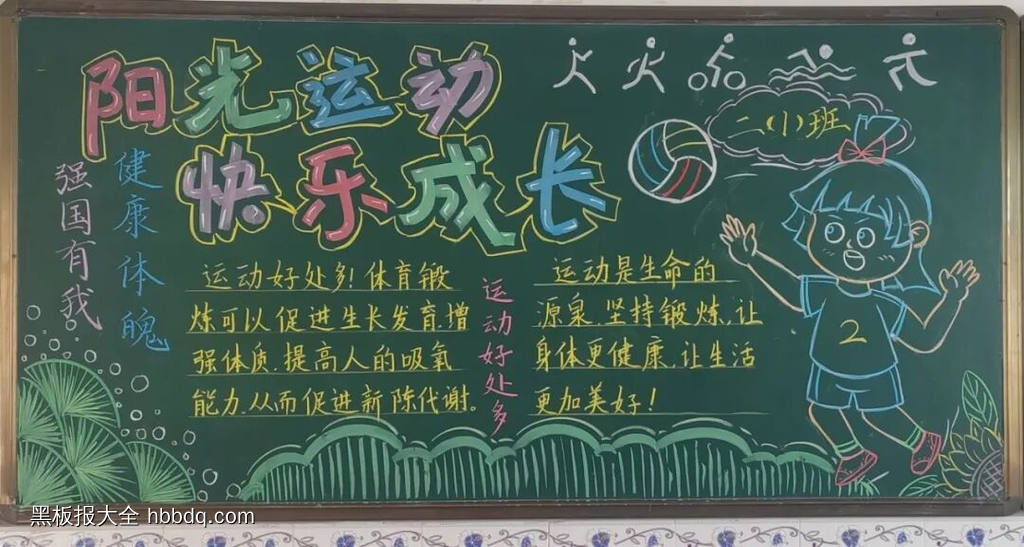 阳光运动
快乐成长
二(1)班
强国有我
健康体魄
运动好处多!体育锻
炼可以促进生长发育,增
强体质,提高人的吸氧
能力,从而促进新陈代谢。
运动好处多
运动是生命的
源泉,坚持锻炼,让
身体更健康,让生活
更加美好!
2
黑板报大全 hbbdq.com